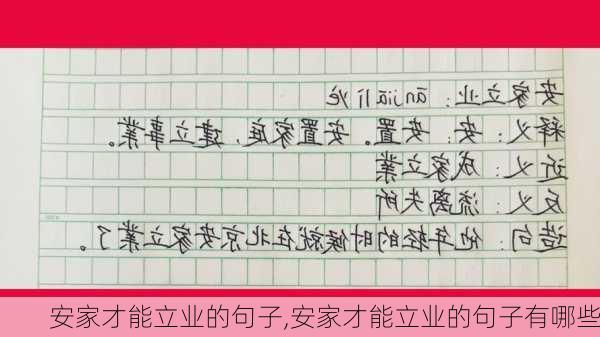 安家立业：ānjiā lì yè
释义：安：安置。安置家庭，建立事業。
近义：成家立業
反义：流离失所
造句：他年轻的时候就在北京安家立業了。
安家才能立业的句子,安家才能立业的句子有哪些